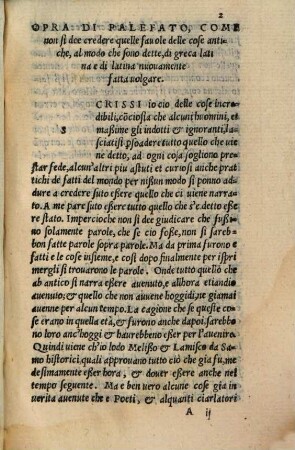 2
OPRA DI PALEFATO, COME
non si dee credere quelle fauole delle cose anti-
che, al modo che sono dette, di greca lati
na e di latina nuouamente
fatta uolgare.
SCRISSI io cio delle cose incre-
dibili, cõciosia che alcuni huomini, et
maßime gli indotti & ignoranti, la-
sciatisi ꝑsoadere tutto quello che ui
ene detto, ad ogni coja sogliono pre-
star fede, alcun'altri piu astuti et curiosi anche prati
chi de fatti del mondo per nißun modo si ponno adu
durre a credere suto eßere quello che ci uiene narra-
to. A me pare suto eßere tutto quello che s'è detto eße
re stato. Impercioche non si dee giudicare che fußi-
no solamente parole, che se cio foße, non si sareb-
bon fatte parole sopra parole. Ma da prima furono e
fatti e le cose insieme, e cost dapo finalmente per ispri
mergli si trouarono le parole. Onde tutto quello che
ab antico si narra eßere auenuto, e allhora etiandio
auenuto; & quello che non auuene hoggidi, ne giamai
auenne per alcun tempo. La cagione che se queste co
se erano in quella età, & furono anche dapoi. sarebbo
no loro anc'hoggi & haurebbeno eßer per l'auenire.
Quindi uiene ch'io lodo Melißo & Lamisco da Sa-
mo historici, quali approuano tutto ciò che gia fu, me
desimamente eßer hora, & douer eßere anche nel
tempo seguente. Ma e ben uero alcune cose gia in
uerita auenute che e Poeti, & alquanti ciarlatori
A ij